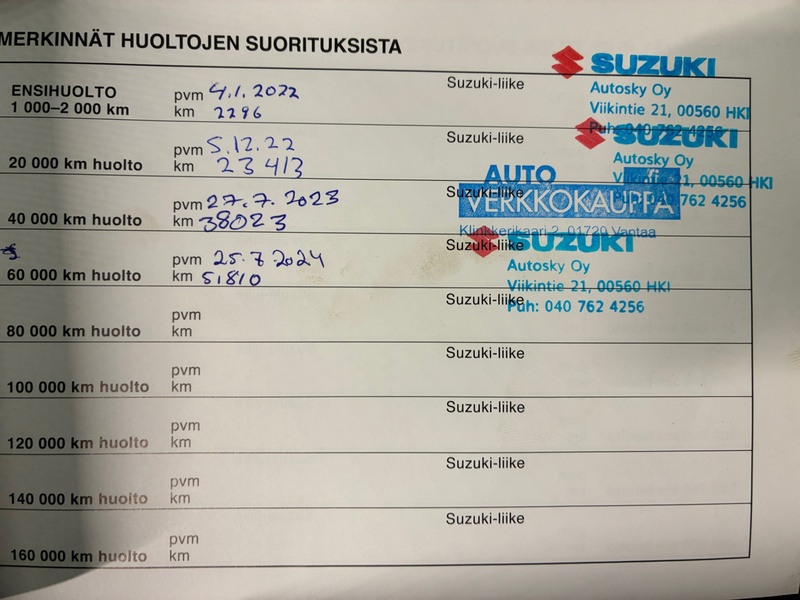 MERKINNÄT HUOLTOJEN SUORITUKSISTA
SUZUKI
ENSIHUOLTO
1 000–2 000 km
pvm 4.1.2022
km 2296
Suzuki-liike
Autosky Oy
Viikintie 21, 00560 HKI
Puh: 040 762 4256
20 000 km huolto
pvm 5.12.22
km 23413
Suzuki-liike
SUZUKI
Autosky Oy
Viikintie 21, 00560 HKI
762 4256
40 000 km huolto
pvm 27.7.2023
km 38023
Suzuki-liike
AUTO
VERKKOKAUPPA
Klinkkerikaari 2, 01720 Vantaa
60 000 km huolto
pvm 25.7.2024
km 51810
Suzuki-liike
SUZUKI
Autosky Oy
Viikintie 21, 00560 HKI
Puh: 040 762 4256
80 000 km huolto
pvm
km
Suzuki-liike
100 000 km huolto
pvm
km
Suzuki-liike
120 000 km huolto
pvm
km
Suzuki-liike
140 000 km huolto
pvm
km
Suzuki-liike
160 000 km huolto
pvm
km
Suzuki-liike